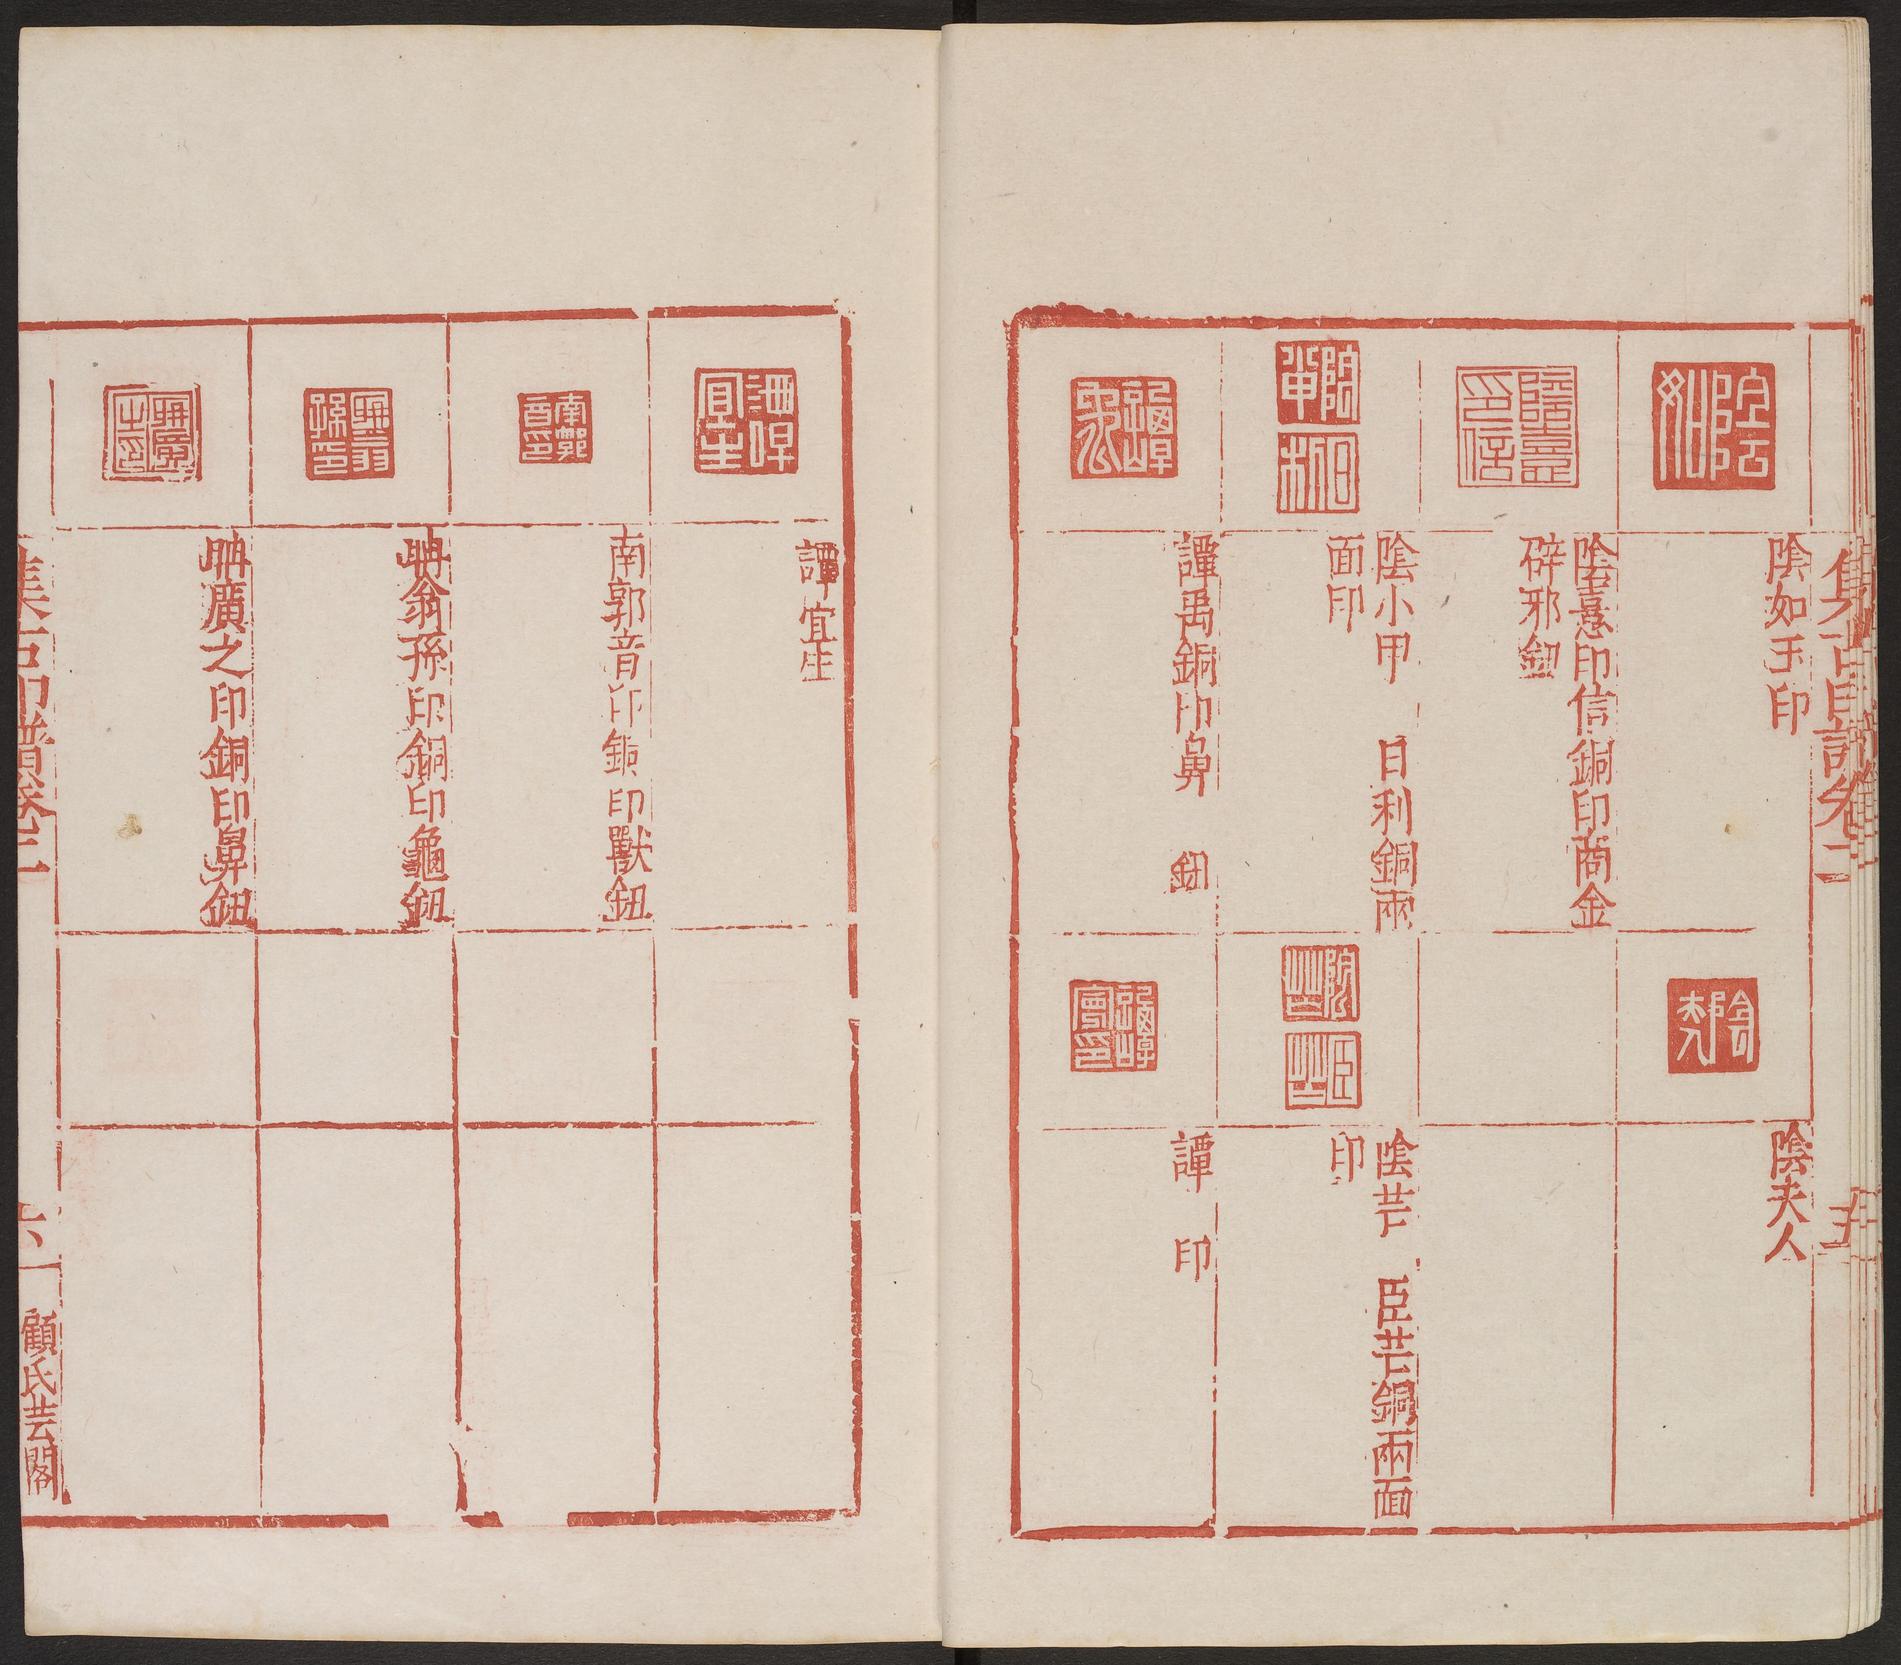 集古印譜卷二
五
陰如玉印
陰夫人
陰憙印信銅印商金
辟邪鈕
陰小甲 日利銅兩
面印
陰芒 臣芒銅兩面
印
譚禹銅印鼻 鈕
譚 印
譚宜生
南郭音印銅印獸鈕
冉翁孫印銅印龜鈕
冉廣之印銅印鼻鈕
集古印譜卷二
六
顧氏芸閣